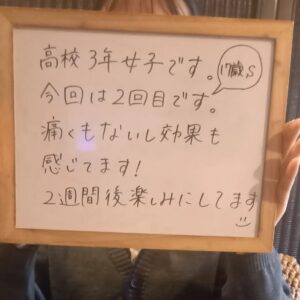 高校3年女子です。
17歳S
今回は2回目です。
痛くもないし効果も
感じてます!
2週間後楽しみにしてます